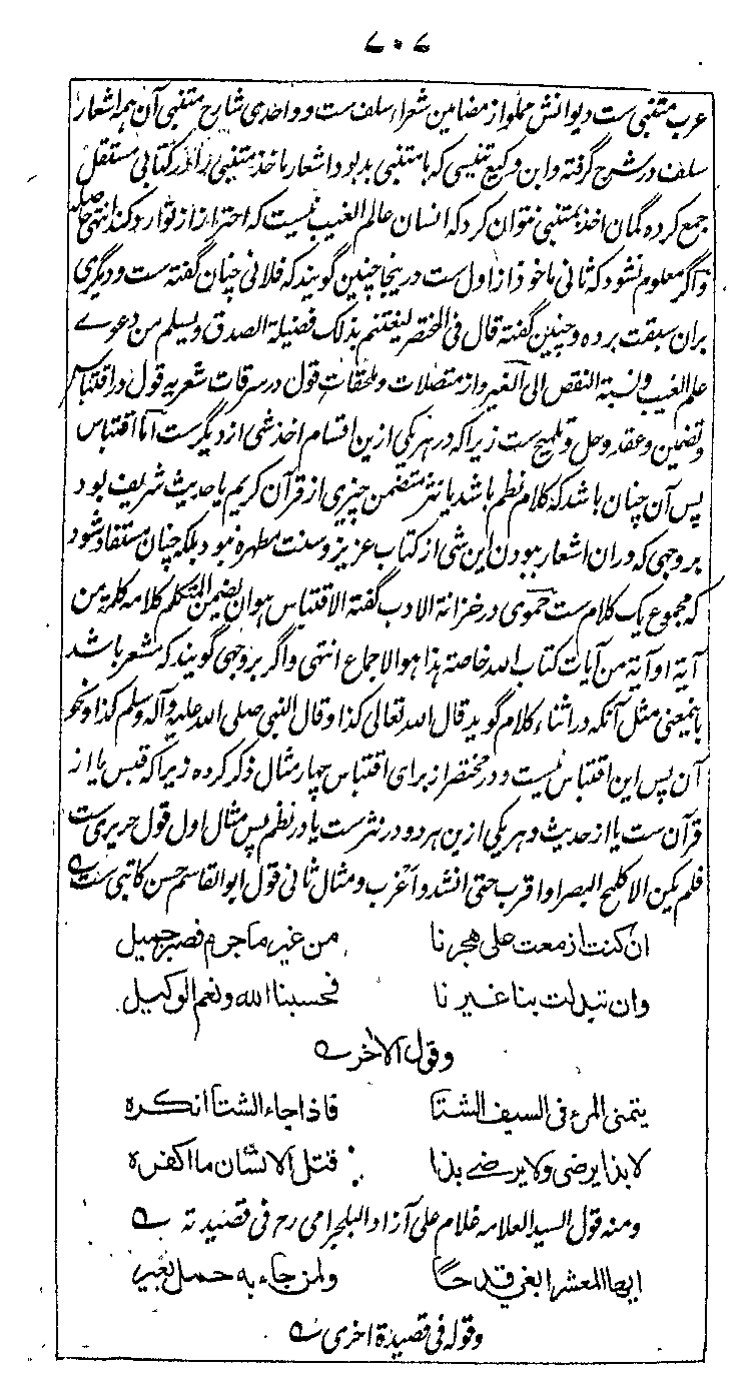 ۷۰۷
عرب متنبی ست دیوانش مملو از مضامین شعراء سلف ست و واحدی شارح متنبی آن همه اشعار
سلف در شرح گرفته و ابن وکیع تنیسی که با متنبی بد بود اشعار ماخذ متنبی را در کتابی مستقل
جمع کرده گمان اخذ بمتنبی نتوان کرد که انسان عالم الغیب نیست که احتراز از توارد کند انتهی حاصله
و اگر معلوم نشود که ثانی ماخوذ از اول ست درینجا چنین گویند که فلانی چنان گفته ست و دیگری
بران سبقت برده و چنین گفته قال فی المختصر لیغتنم بذلک فضیلة الصدق ویسلم من دعوے
علم الغیب ونسبة النقص الی الغیر و از متصلات و ملحقات قول در سرقات شعریه قول در اقتباس
و تضمین و عقد و حل و تلمیح ست زیرا که در هر یکی ازین اقسام اخذ شی از دیگر ست اما اقتباس
پس آن چنان باشد که کلام نظم باشد یا نثر متضمن چیزی از قرآن کریم یا حدیث شریف بود
بر وجهی که دران اشعار ببودن این شی از کتاب عزیز و سنت مطهره نبود بلکه چنان مستفاد شود
که مجموع یک کلام ست حموی در خزانة الادب گفته الاقتباس هو ان یضمن المتکلم کلامه کلمة من
آیة او آیة من آیات کتاب الله خاصة هذا هو الاجماع انتهی و اگر بر وجهی گویند که مشعر باشد
باینمعنی مثل آنکه در اثناء کلام گوید قال الله تعالی کذا و قال النبی صلی الله علیه وآله وسلم کذا و نحو
آن پس این اقتباس نیست و در مختصر از برای اقتباس چهار مثال ذکر کرده زیرا که قبس یا از
قرآن ست یا از حدیث و هر یکی ازین هر دو در نثر ست یا در نظم پس مثال اول قول حریری ست
فلم یکن الا کلمح البصر او اقرب حتی انشد واغرب و مثال ثانی قول ابو القاسم حسن کاتبی ست
ان کنت ازمعت علی هجرنا من غیر ما جرم فصبر جمیل
وان تبدلت بنا غیرنا فحسبنا الله ونعم الوکیل
وقول الاخر
یتمنی المرء فی الصیف الشتا فاذا جاء الشتا انکره
لا بذا یرضی ولا یرضے بذا قتل الانسان ما اکفره
ومنه قول السید العلامه غلام علی آزاد البلجرامی رح فی قصیدته
ایها المعشر ابغی قدحا ولمن جاء به حمل بعیر
وقوله فی قصیدة اخری